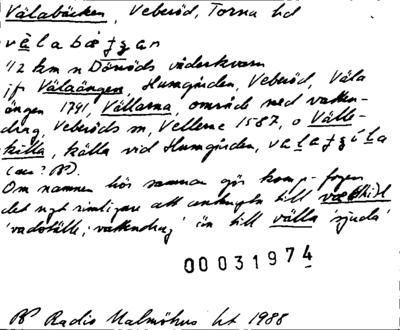 Välabäcken, Veberöd, Torna hd
välabäʒʒan
1/2 km n Dörröds väderkvarn
jfr Välaängen, Humgården, Veberöd, Väla
ängen 1791, Vällarna, område med vatten-
drag, Veberöds sn, Vellerne 1587, o Välle-
källa, källa vid Humgården,
Om namnen hör samman gör komp.-fogen
det ngt rimligare att anknyta till
'vadställe; vattendrag' än till välla 'sjuda'
00031974
Radio Malmöhus ht 1988